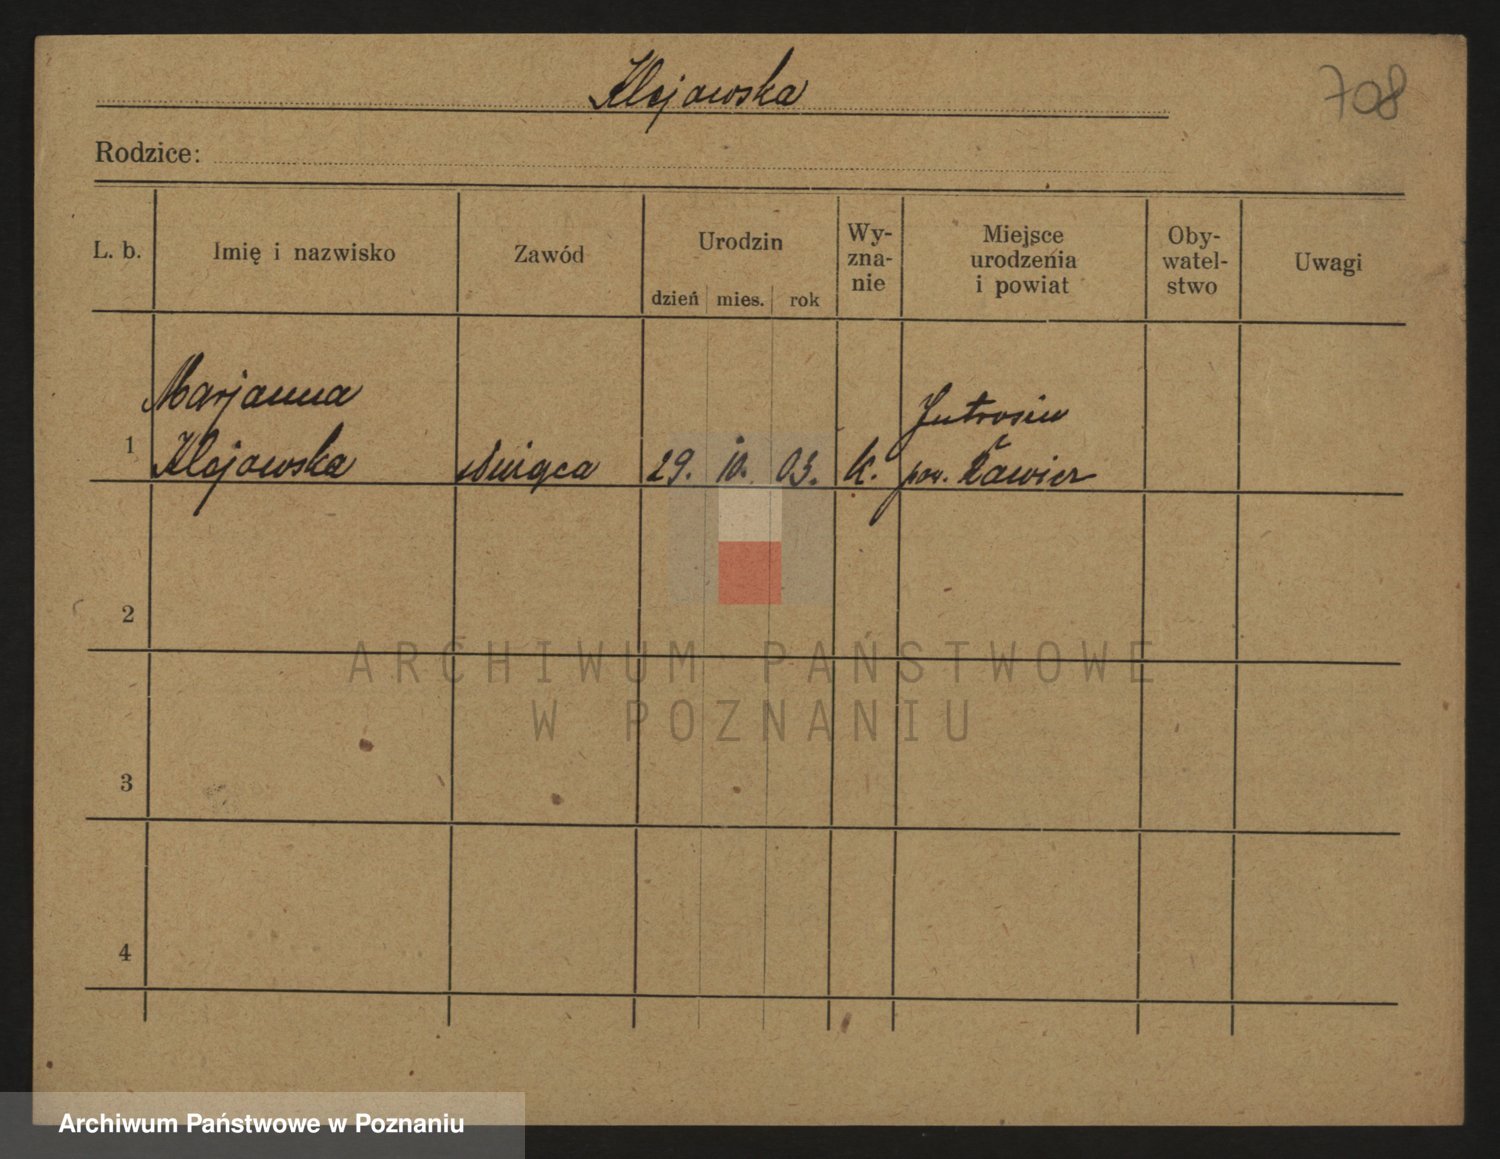 Klejawska
708
Rodzice:
L. b. Imię i nazwisko Zawód Urodzin dzień mies. rok Wy-zna-nie Miejsce urodzenia i powiat Oby-watel-stwo Uwagi
Marjanna
Jutrosin
1 Klejawska 29. 10. 03. k. pow. Rawicz
2
ARCHIWUM PAŃSTWOWE
W POZNANIU
3
4
Archiwum Państwowe w Poznaniu